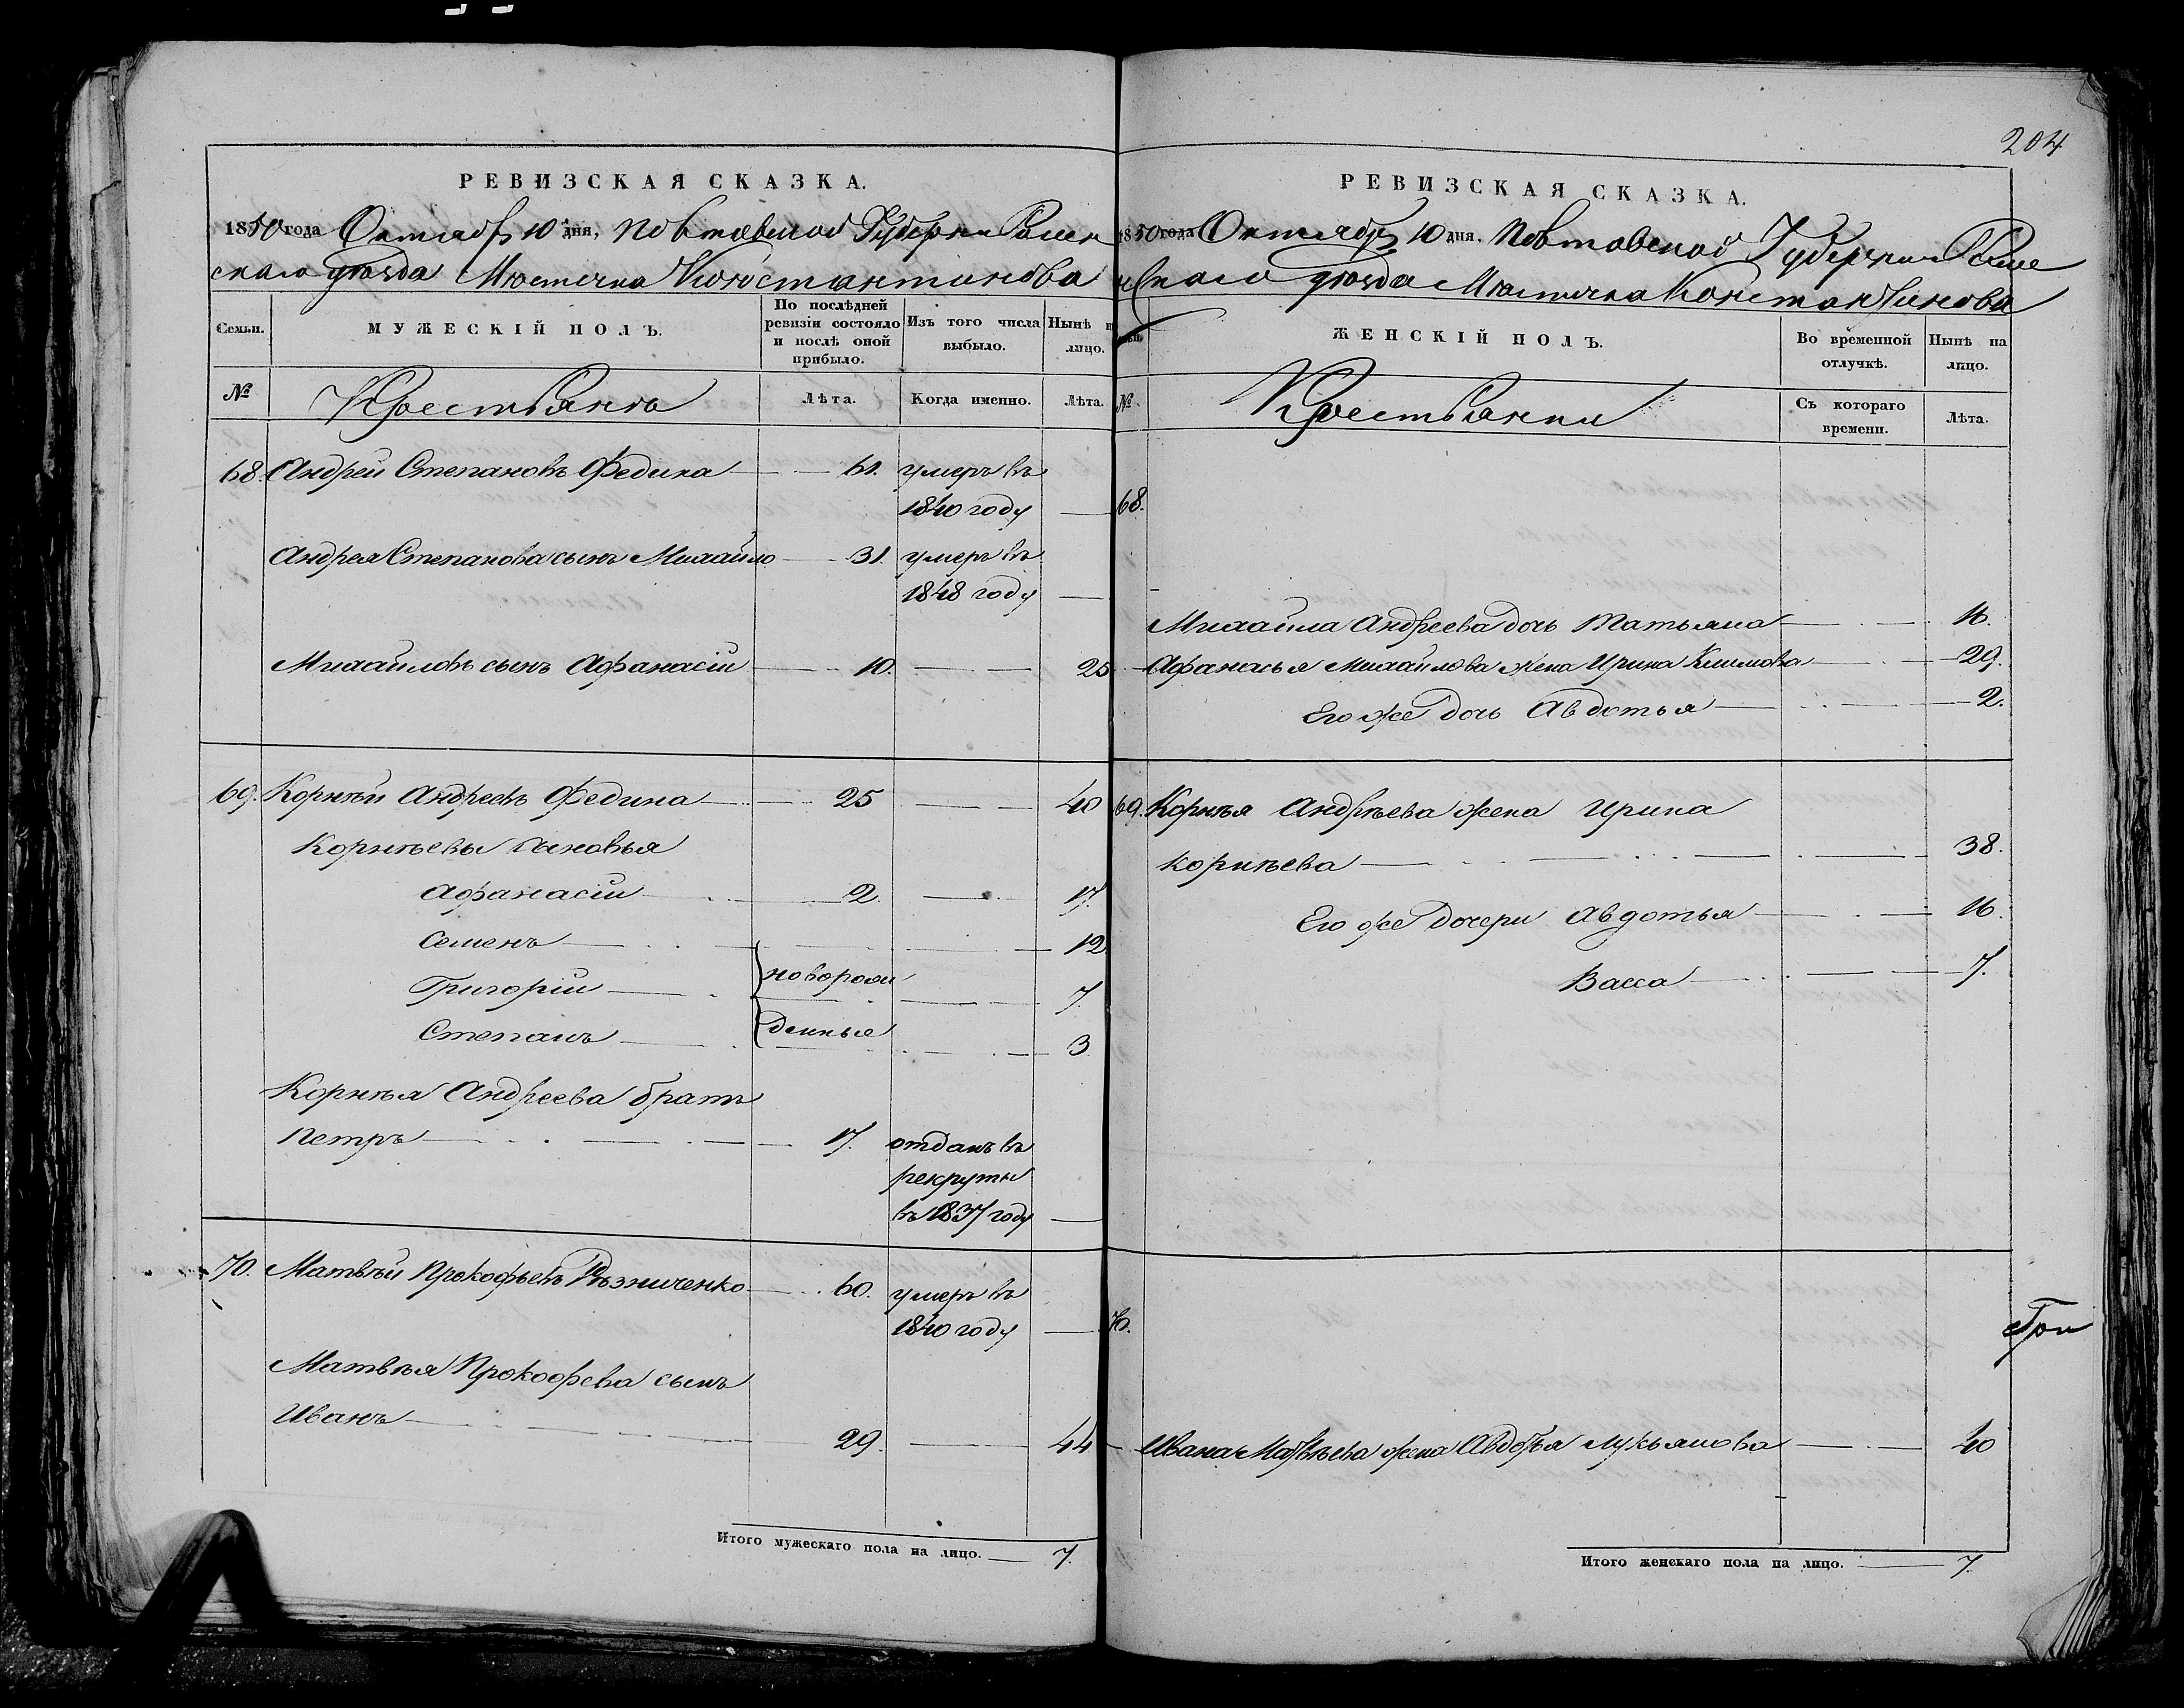 204
РЕВИЗСКАЯ СКАЗКА.
1850 года Октября 10 дня, Полтавской Губернии Ромен
скаго уѣзда Мѣстечка Константинова
Семьи.
МУЖЕСКІЙ ПОЛЪ.
По послѣдней ревизіи состояло и послѣ оной прибыло.
Изъ того числа выбыло.
Нынѣ на лицо.
№
Крестьянъ
Лѣта.
Когда именно.
Лѣта.
68. Андрей Степановъ Федина 61. умеръ въ
1840 году
Андрея Степанова сынъ Михайло 31. умеръ въ
1848 году
Михайловъ сынъ Афанасій 10. 25
69. Корнѣй Андреевъ Федина 25 40
Корнѣевы сыновья
Афанасій 2. 17.
Семенъ 12
Григорій новорож 7.
Степанъ денные 3
Корнѣя Андреева братъ
Петръ 17. отданъ въ
рекруты
въ 1837 году
70. Матвѣй Прокофьевъ Рѣзниченко 60. умеръ въ
1840 году
Матвѣя Прокофева сынъ
Иванъ 29. 44
Итого мужескаго пола на лицо. 7.
РЕВИЗСКАЯ СКАЗКА.
1850 года Октября 10 дня, Полтавской Губернии Роме
нскаго уѣзда Мѣстечка Константинова
ЖЕНСКІЙ ПОЛЪ.
Во временной отлучкѣ.
Нынѣ на лицо.
№
Крестьянки
Съ котораго времени.
Лѣта.
68.
Михайла Андреева дочь Татьяна 16.
Афанасья Михайлова жена Ирина Климова 29.
Его же дочь Авдотья 2.
69. Корнѣя Андрѣева жена Ирина
Корнѣева 38.
Его же дочери Авдотья 16.
Васса 7.
70.
Ивана Матвѣева жена Авдотья Лукьянова 40
Итого женскаго пола на лицо. 7.